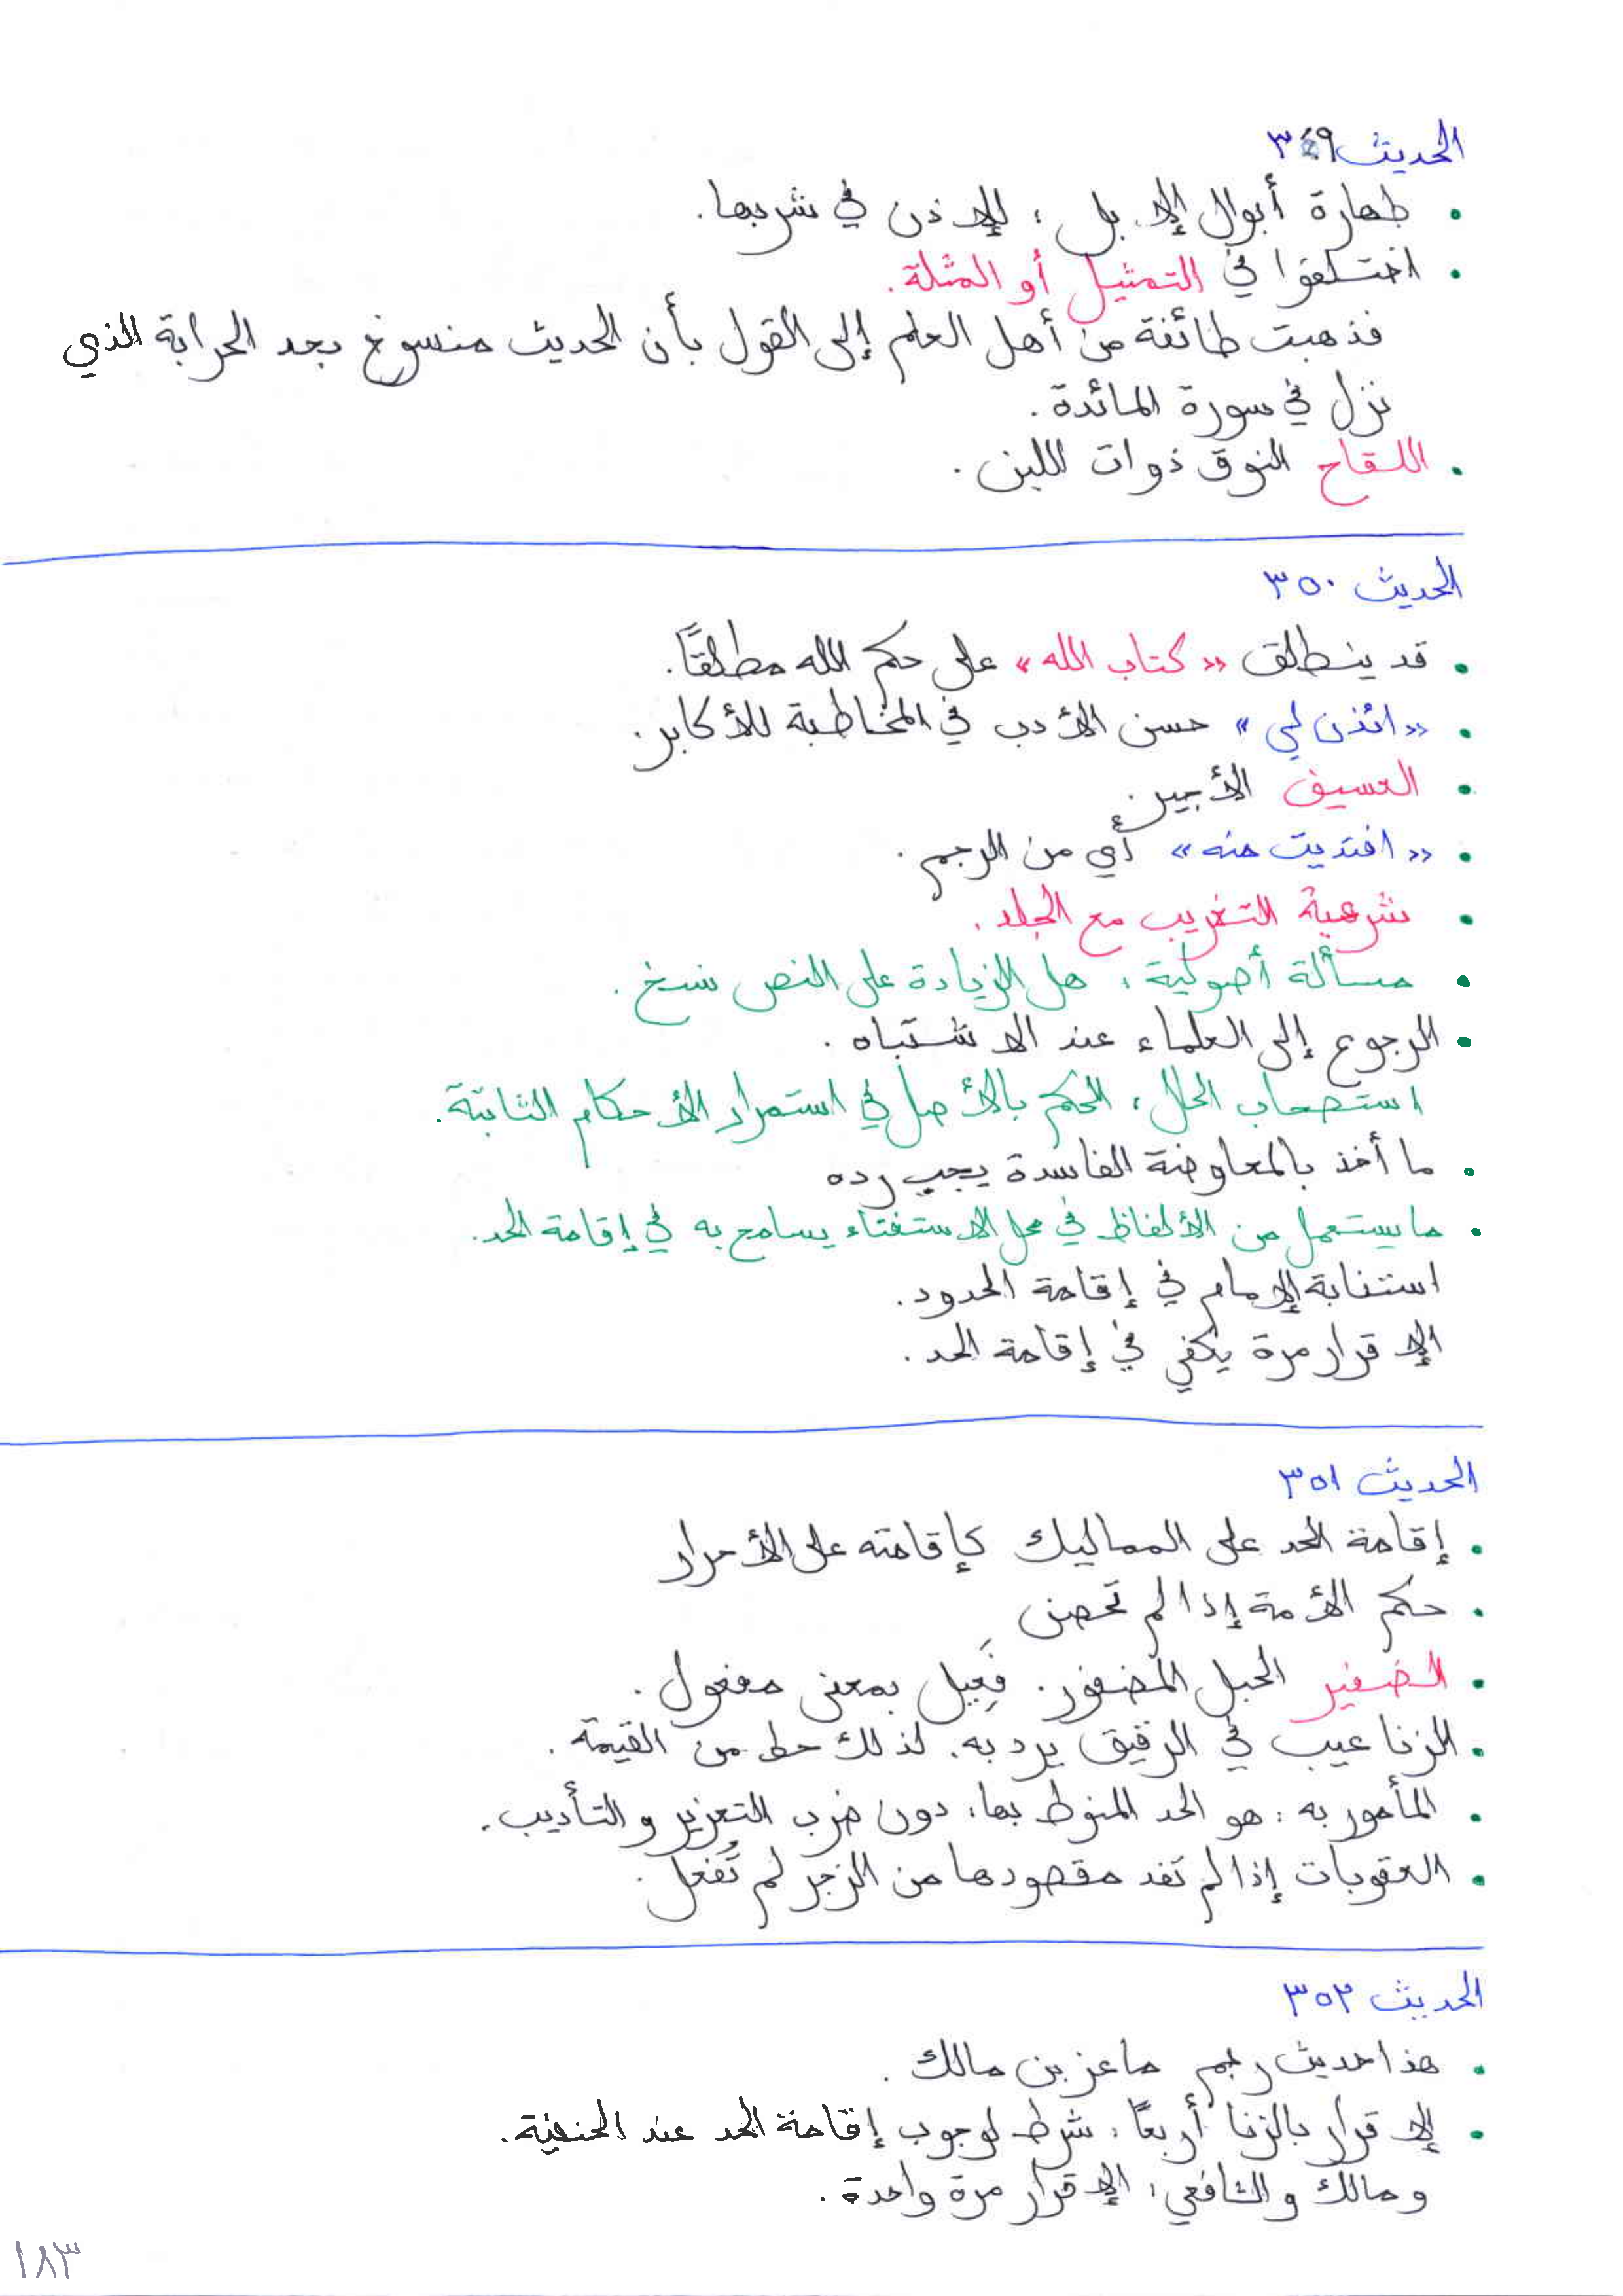 الحديث ٣٤٩
• طهارة أبوال الإبل ، للإذن في شربها.
• اختلفوا في التمثيل أو المثلة.
فذهبت طائفة من أهل العلم إلى القول بأن الحديث منسوخ بحد الحرابة الذي
نزل في سورة المائدة.
• اللقاح النوق ذوات اللبن.
الحديث ٣٥٠
• قد ينطلق «كتاب الله» على حكم الله مطلقًا.
• «ائذن لي» حسن الأدب في المخاطبة للأكابر.
• العسيف الأجير.
• «افتديت منه» أي من الرجم.
• شرعية التغريب مع الجلد.
• مسألة أصولية ، هل الزيادة على النص نسخ.
• الرجوع إلى العلماء عند الاشتباه.
استصحاب الحال ، الحكم بالأصل في استمرار الأحكام الثابتة.
• ما أخذ بالمعاوضة الفاسدة يجب رده
• ما يستعمل من الألفاظ في محل الاستفتاء يسامح به في إقامة الحد.
استنابة الإمام في إقامة الحدود.
الإقرار مرة يكفي في إقامة الحد.
الحديث ٣٥١
• إقامة الحد على المماليك كإقامته على الأحرار
• حكم الأمة إذا لم تحصن
• الضفير الحبل المضفور. فَعِيل بمعنى مفعول.
• الزنا عيب في الرقيق يرد به. لذلك حط من القيمة.
• المأمور به : هو الحد المنوط بها، دون ضرب التعزير والتأديب.
• العقوبات إذا لم تفد مقصودها من الزجر لم تُفعل.
الحديث ٣٥٢
• هذا حديث رجم ماعز بن مالك.
• الإقرار بالزنا أربعًا، شرط لوجوب إقامة الحد عند الحنفية.
ومالك والشافعي، الإقرار مرة واحدة.
١٨٣